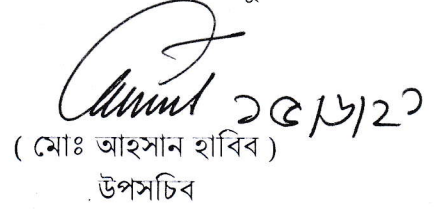 ১৫/৬/২১
( মোঃ আহসান হাবিব )
উপসচিব